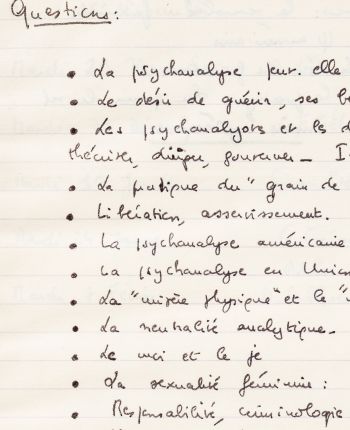 Questions:
• La psychanalyse peut-elle
• Le désir de guérir, ses b
• Les psychanalystes et les d
théoriser, diriger, gouverner –
• La pratique du "grain de
• Libération, asservissement.
• La psychanalyse américaine
• La psychanalyse en Union
• La "misère physique" et le "
• La neutralité analytique.
• Le moi et le je
• La sexualité féminine :
• Responsabilité, criminologie